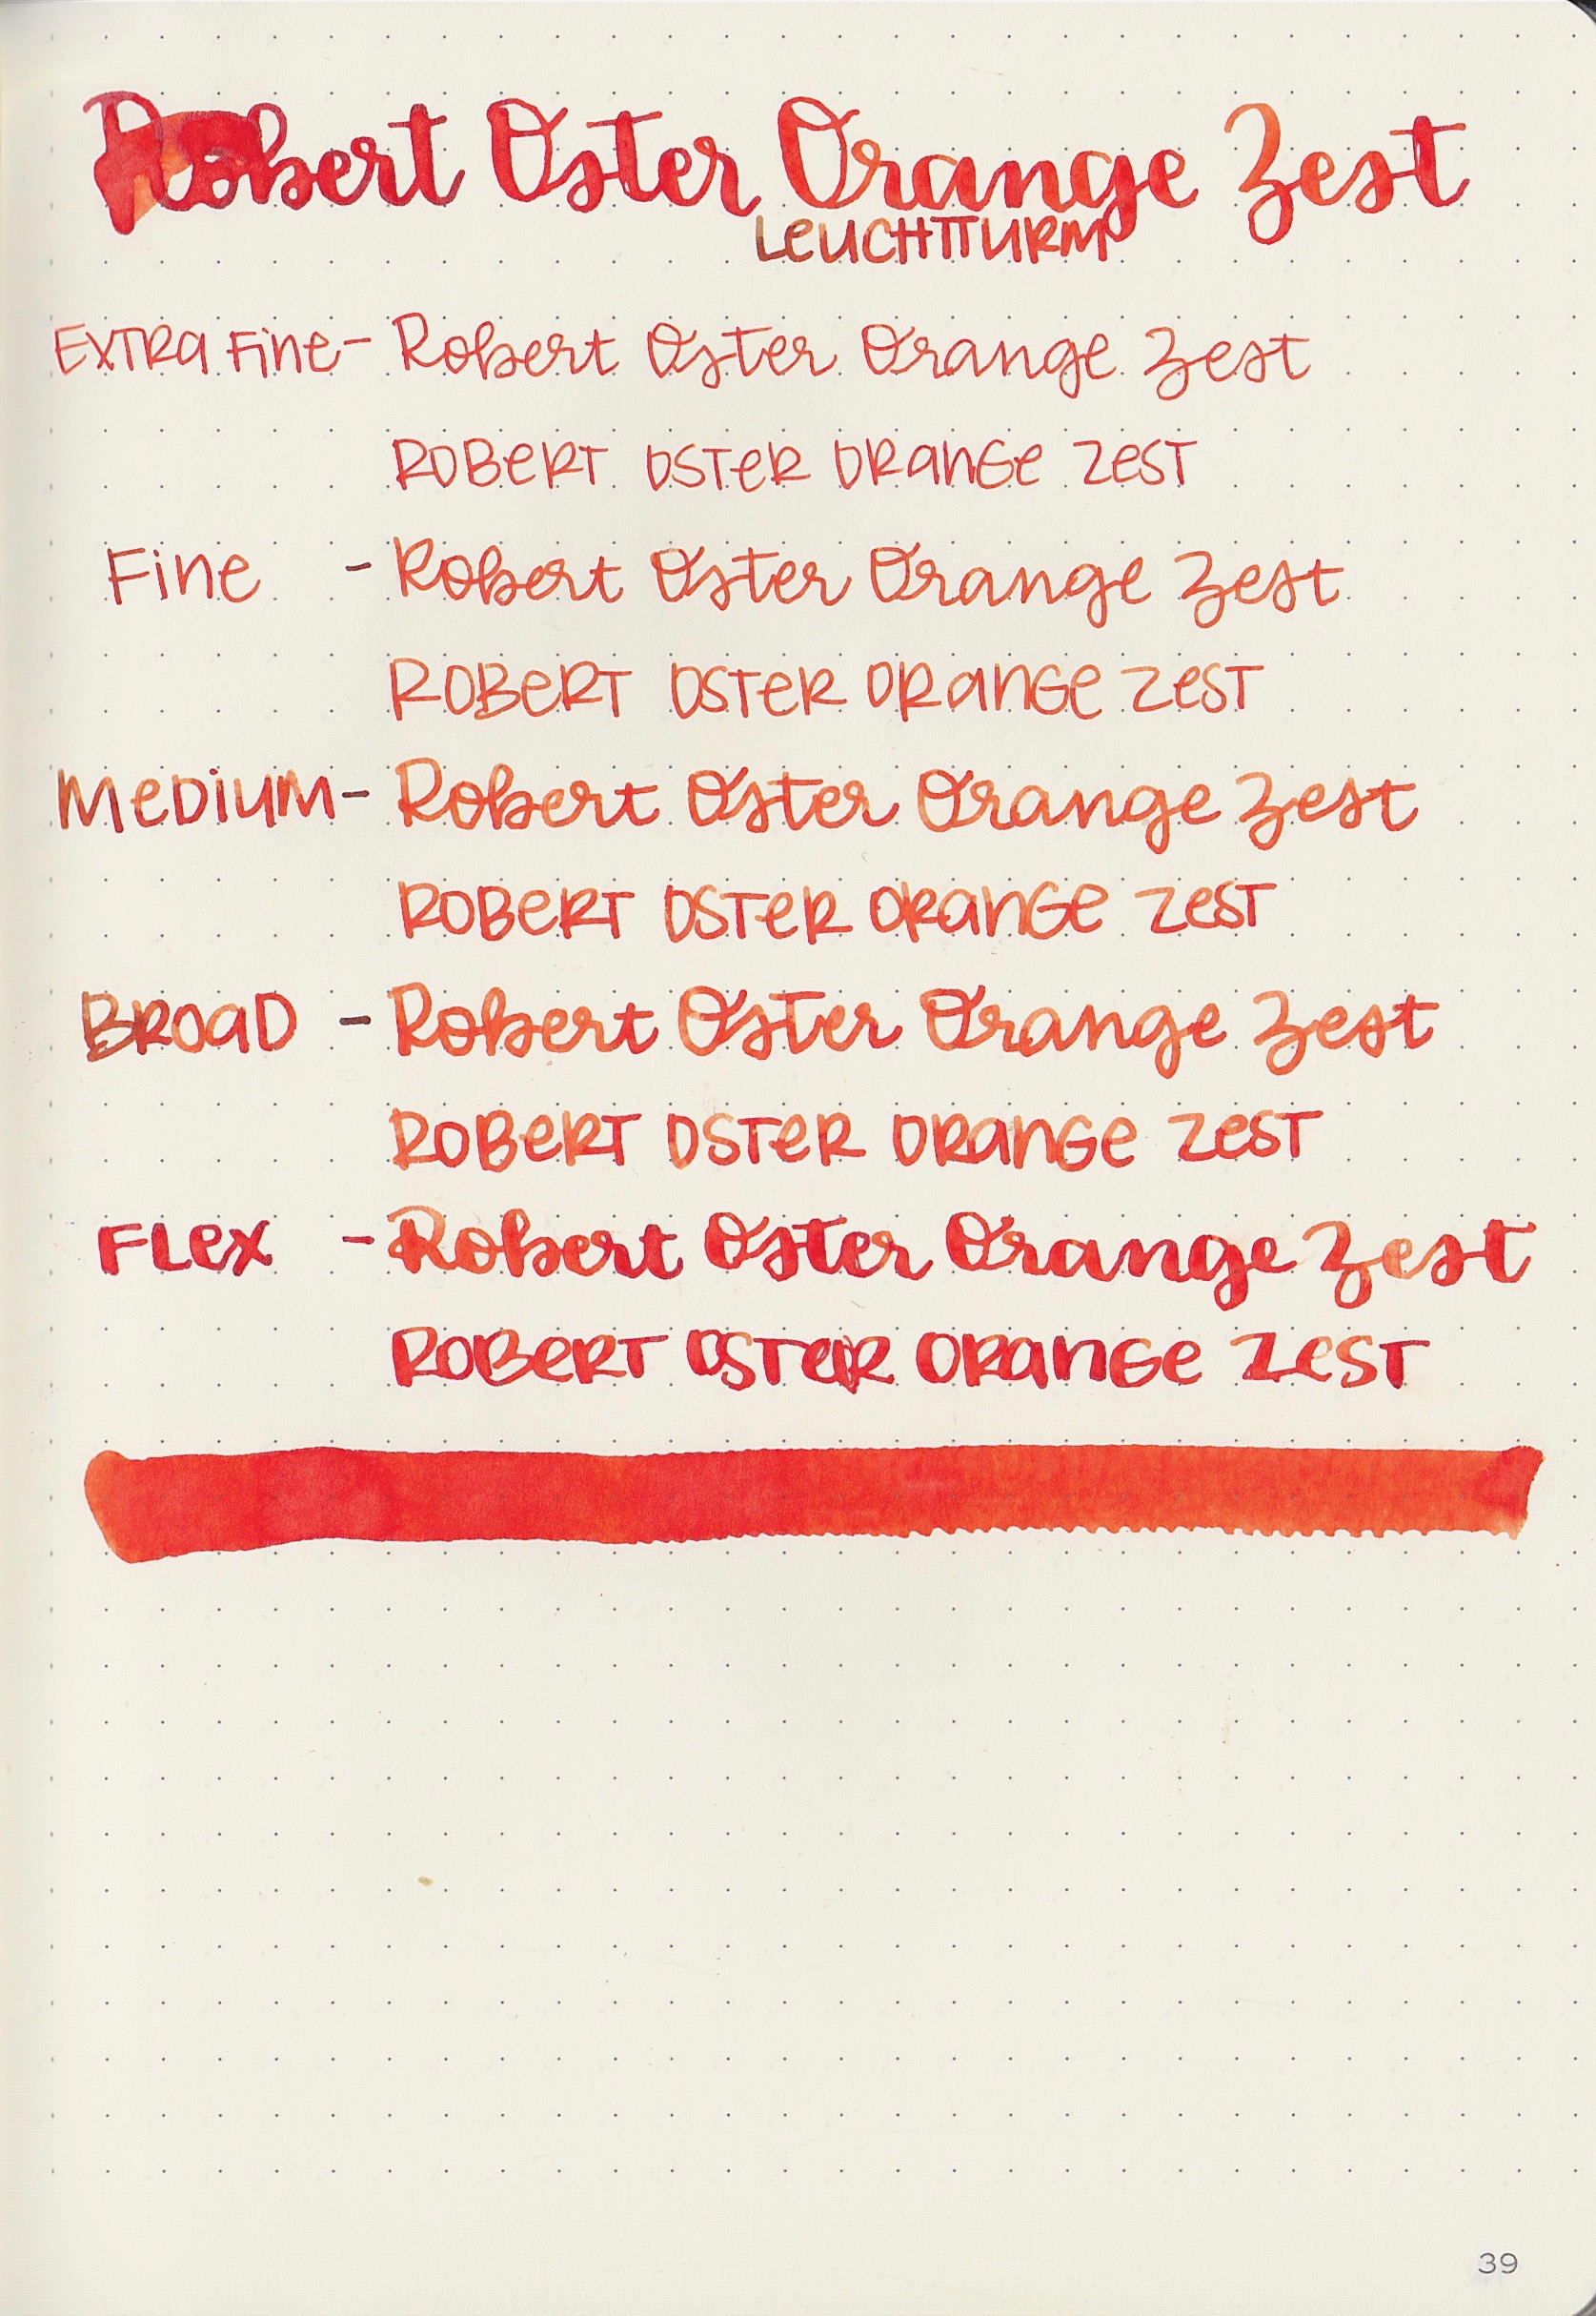 Robert Oster Orange Zest
LEUCHTTURM
EXTRA FINE - Robert Oster Orange Zest
ROBERT OSTER ORANGE ZEST
FINE - Robert Oster Orange Zest
ROBERT OSTER ORANGE ZEST
MEDIUM - Robert Oster Orange Zest
ROBERT OSTER ORANGE ZEST
BROAD - Robert Oster Orange Zest
ROBERT OSTER ORANGE ZEST
FLEX - Robert Oster Orange Zest
ROBERT OSTER ORANGE ZEST
39